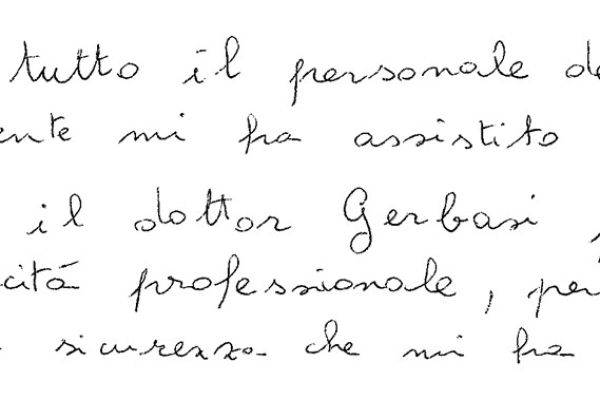 tutto il personale de
ente mi ha assistito
il dottor Gerbasi
cità professionale, per
sicurezza che mi ha